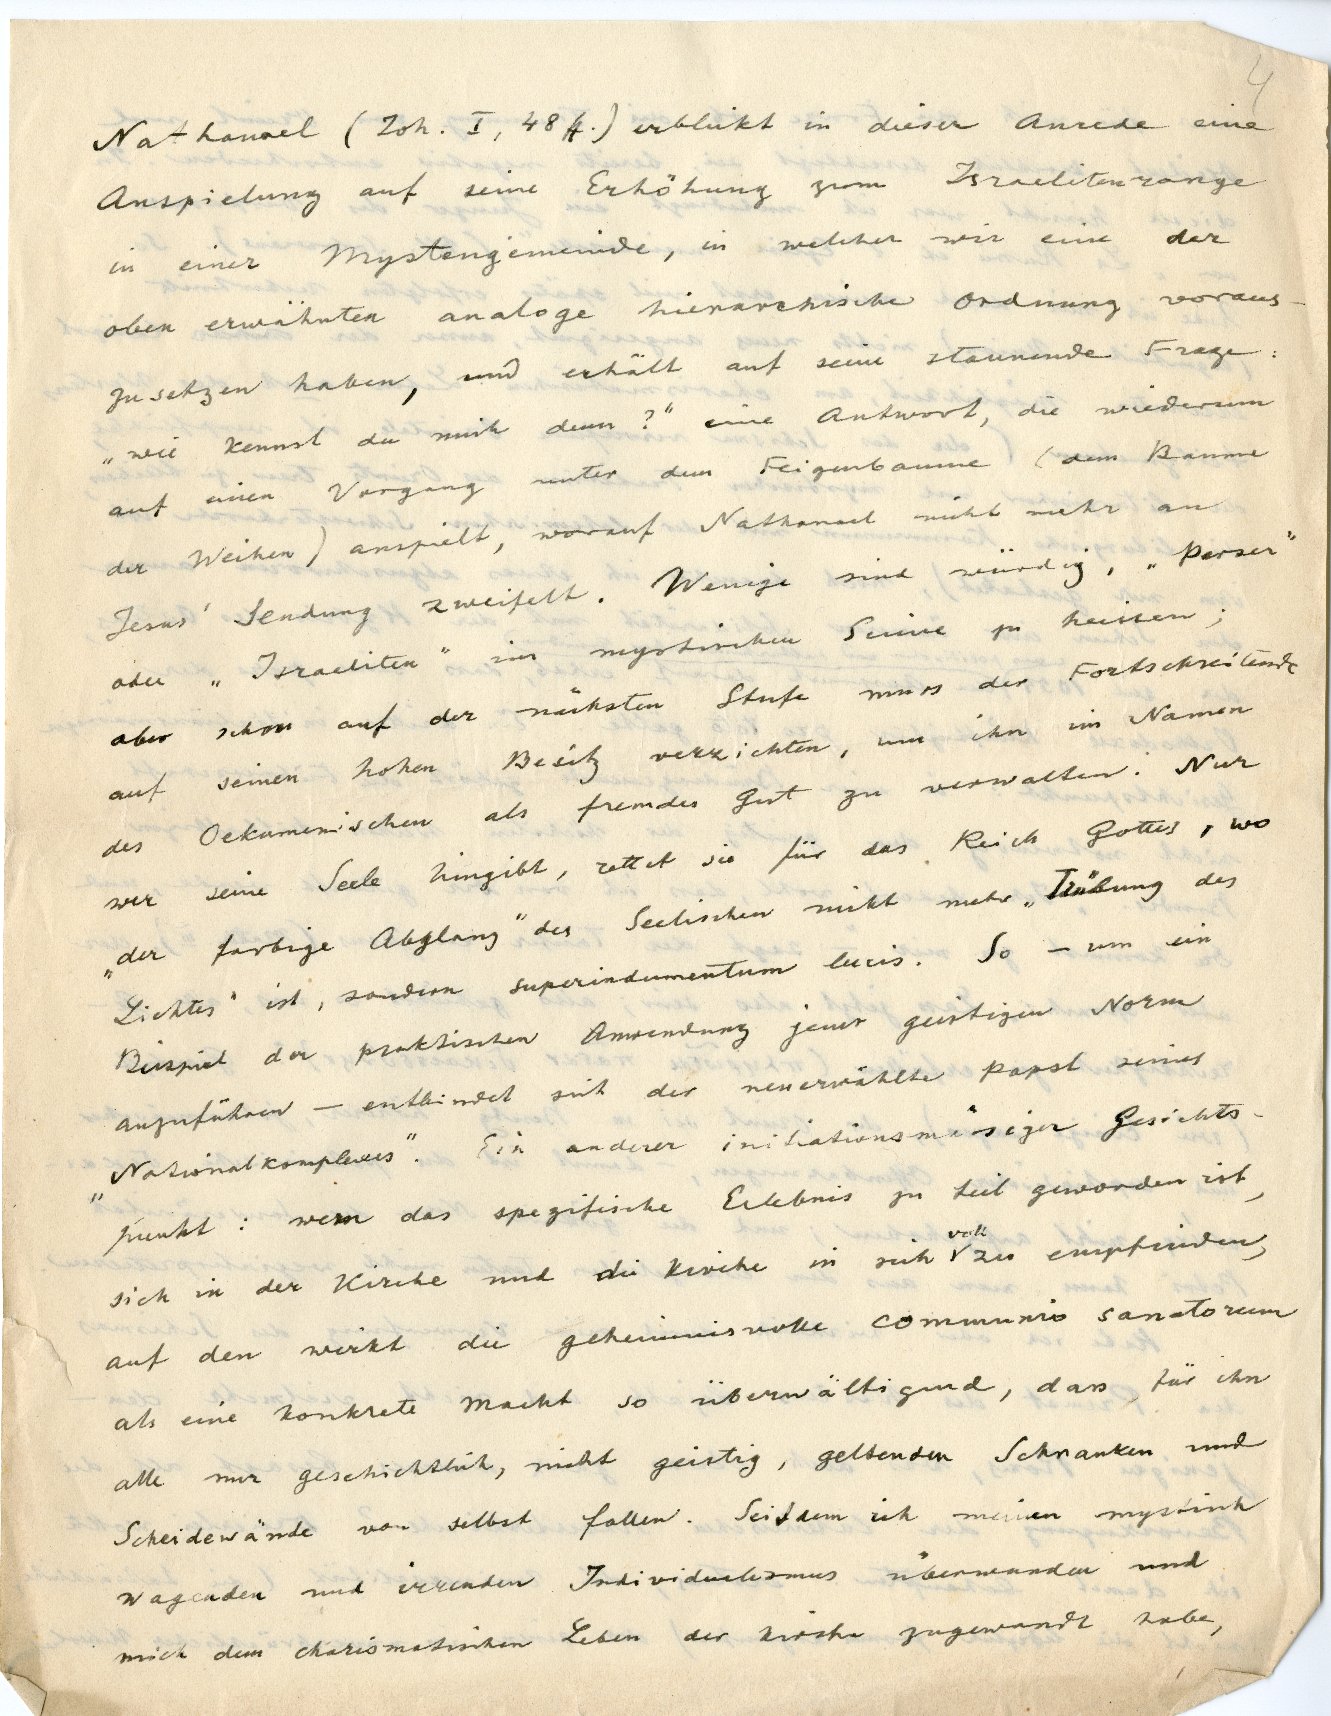 4
Nathanael (Joh. I, 48 ff.) erblickt in dieser Anrede eine
Anspielung auf seine Erhöhung zum Israelitenrange
in einer Mystengemeinde, in welcher wir eine der
oben erwähnten analoge hierarchische Ordnung voraus-
zusetzen haben, und erhält auf seine staunende Frage:
„wie kennst du mich denn?" eine Antwort, die wiederum
auf einen Vorgang unter dem Feigenbaume (dem Baume
der Weihen) anspielt, worauf Nathanael nicht mehr an
Jesus' Sendung zweifelt. Wenige sind würdig, „Perser"
oder „Israeliten" im mystischen Sinne zu heissen;
aber schon auf der nächsten Stufe muss der Fortschreitende
auf seinen hohen Besitz verzichten, um ihn im Namen
des Oekumenischen als fremdes Gut zu verwalten. Nur
wer seine Seele hingibt, rettet sie für das Reich Gottes, wo
„der farbige Abglanz" des Seelischen nicht mehr „Trübung des
Lichtes" ist, sondern superindumentum lucis. So – um ein
Beispiel der praktischen Anwendung jener geistigen Norm
anzuführen – entbindet sich der neuerwählte Papst seines
„Nationalkomplexes". Ein anderer initiationsmässiger Gesichts-
punkt: wem das spezifische Erlebnis zu teil geworden ist,
sich in der Kirche und die Kirche in sich voll zu empfinden,
auf den wirkt die geheimnisvolle communio sanctorum
als eine konkrete Macht so überwältigend, dass für ihn
alle nur geschichtlich, nicht geistig, geltenden Schranken und
Scheidewände von selbst fallen. Seitdem ich meinen mystisch
wagenden und irrenden Individualismus überwunden und
mich dem charismatischen Leben der Kirche zugewandt habe,